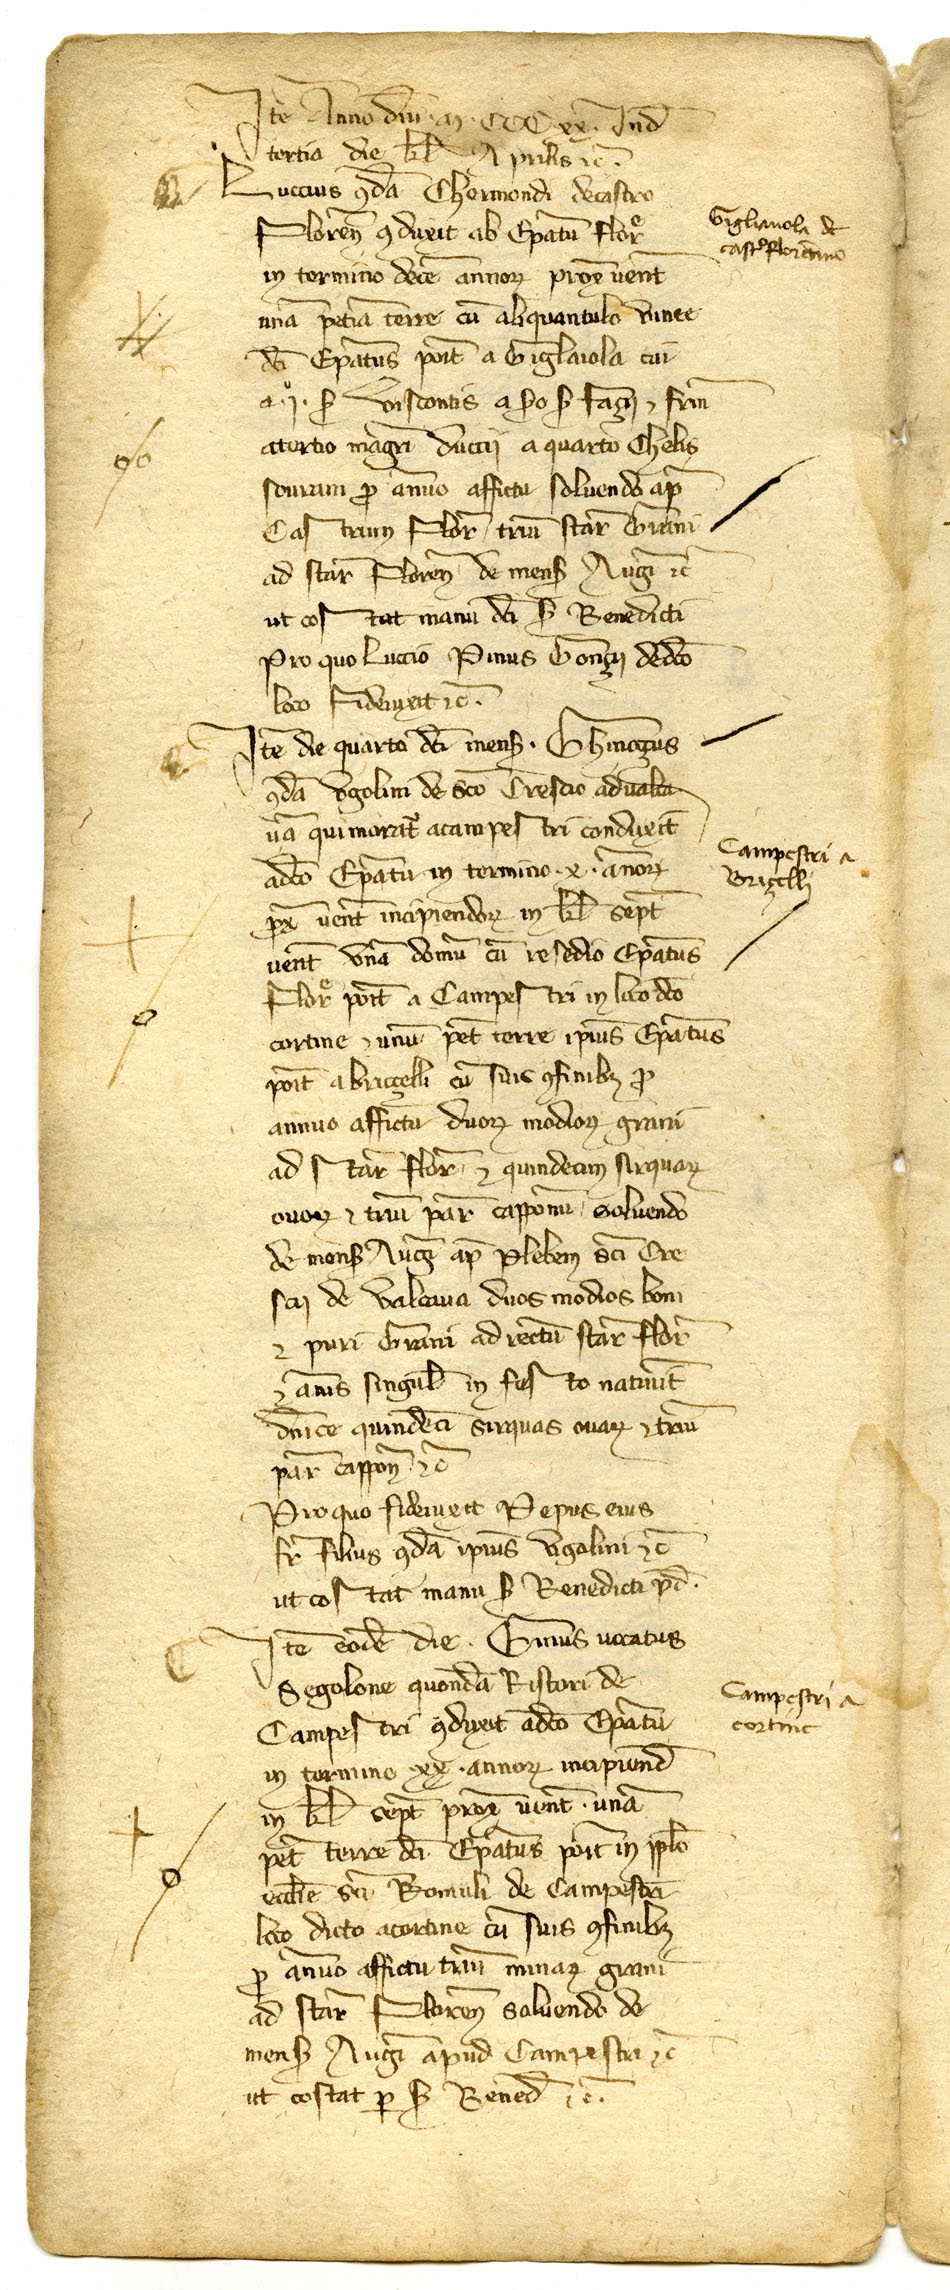 Itē Anno dīn · m · CCC xx · Ind
tertia die kl Aprilis ⁊c̄ ·
Luccius ꝯdā Chermondi de castro
Florēn ꝯduxit ab Epātu florͤ
in termino decē annoꝝ prox̄ vent̄
unā petiā terre cū aliquantulo vinee
dc̄i Epātus poīt a Giglaiola cui
a · jͦ · ẜ Viscontis a ẜo ẜ fazij ⁊ frīn
a tertio magr̄i Duccij a quarto Chelis
ꝓ annuo affictu solvendo ap̄
Castrum Flor̄ triū star̄ Grani
ad star̄ Florēn de menẜ Auḡi ⁊c̄
ut costat manu dc̄i ẜ Benedicti
Pro quo Luccio Pinus Gonzij de dc̄o
loco fideiuxit ⁊c̄ ·
Itē die quarto dc̄i menẜ ·
ꝯdā Ugolini de sc̄o Crescio ad valca
va qui morat̄ a campestri conduxit
a dc̄o Epātu in termino · x · annoꝝ
prx̄ vent̄ incipiendoꝝ in kl sept̄
vent̄ unā domū cū resedio Epātus
Florͤ poīt a Campestri in loco dc̄o
cortine ⁊ unū pet̄ terre ipīus Epātus
poīt a bricelli cū suis ꝯfinibꝫ ꝓ
annuo affictu duoꝝ modioꝝ grani
ad star̄ flor̄ ⁊ quindecim sirquaꝝ
ovoꝝ ⁊ triū par̄ capponū solvendo
de menẜ Auḡ ap̄ Plebem sc̄i Cre
scij de valcava duos modios boni
⁊ puri Grani ad rectū star̄ flor̄
⁊ anīs singul̄ in festo nativit̄
dn̄ice quindeci sirquas ovoꝝ ⁊ triū
par̄ cappon̄ · ⁊c̄
Pro quo fideiuxit Pepus eius
fr̄ filius ꝯdā ipīus Ugolini ⁊c̄
ut costat manu ẜ Benedicti pd̄ ·
Itē eodē die · Ginus vocatus
Segolone quondā Ristori de
Campestri ꝯduxit a dc̄o Epātu
in termino xx · annoꝝ incipiend̄
in kl sept̄ prox̄ vent̄ · unā
pet̄ terre dc̄i Epātus poīt in pplo
eccl̄ie sc̄i Romuli de Campestri
loco dicto a cortine cū suis ꝯfinibꝫ
ꝓ annuo affictu triū minaꝝ grani
ad star̄ Florēn solvendo de
menẜ Auḡi apud Campestri ⁊c̄
ut costat ꝑ ẜ Bened̄ ⁊c̄ ·
Giglianola de
castº florentino
Campestri a
Brizelli
Campestri a
cortine